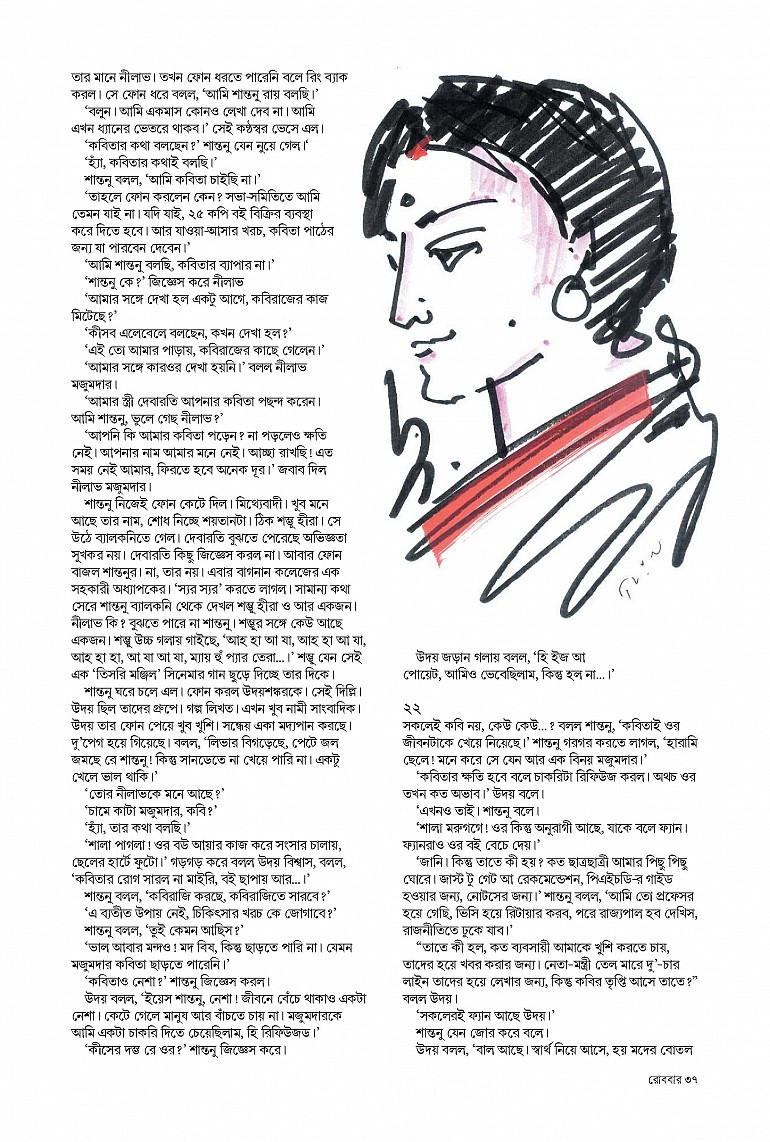 তার মানে নীলাভ। তখন ফোন ধরতে পারেনি বলে রিং ব্যাক
করল। সে ফোন ধরে বলল, ‘আমি শান্তনু রায় বলছি।’
‘বলুন। আমি একমাস কোনও লেখা দেব না। আমি
এখন ধ্যানের ভেতরে থাকব।’ সেই কণ্ঠস্বর ভেসে এল।
‘কবিতার কথা বলছেন?’ শান্তনু যেন নুয়ে গেল।‘
‘হ্যাঁ, কবিতার কথাই বলছি।’
শান্তনু বলল, ‘আমি কবিতা চাইছি না।’
‘তাহলে ফোন করলেন কেন? সভা-সমিতিতে আমি
তেমন যাই না। যদি যাই, ২৫ কপি বই বিক্রির ব্যবস্থা
করে দিতে হবে। আর যাওয়া-আসার খরচ, কবিতা পাঠের
জন্য যা পারবেন দেবেন।’
‘আমি শান্তনু বলছি, কবিতার ব্যাপার না।’
‘শান্তনু কে?’ জিজ্ঞেস করে নীলাভ
‘আমার সঙ্গে দেখা হল একটু আগে, কবিরাজের কাজ
মিটেছে?’
‘কীসব এলেবেলে বলছেন, কখন দেখা হল?’
‘এই তো আমার পাড়ায়, কবিরাজের কাছে গেলেন।’
‘আমার সঙ্গে কারওর দেখা হয়নি।’ বলল নীলাভ
মজুমদার।
‘আমার স্ত্রী দেবারতি আপনার কবিতা পছন্দ করেন।
আমি শান্তনু, ভুলে গেছ নীলাভ?’
‘আপনি কি আমার কবিতা পড়েন? না পড়লেও ক্ষতি
নেই। আপনার নাম আমার মনে নেই। আচ্ছা রাখছি! এত
সময় নেই আমার, ফিরতে হবে অনেক দূর।’ জবাব দিল
নীলাভ মজুমদার।
শান্তনু নিজেই ফোন কেটে দিল। মিথ্যেবাদী। খুব মনে
আছে তার নাম, শোধ নিচ্ছে শয়তানটা। ঠিক শম্ভু হীরা। সে
উঠে ব্যালকনিতে গেল। দেবারতি বুঝতে পেরেছে অভিজ্ঞতা
সুখকর নয়। দেবারতি কিছু জিজ্ঞেস করল না। আবার ফোন
বাজল শান্তনুর। না, তার নয়। এবার বাগনান কলেজের এক
সহকারী অধ্যাপকের। ‘স্যর স্যর’ করতে লাগল। সামান্য কথা
সেরে শান্তনু ব্যালকনি থেকে দেখল শম্ভু হীরা ও আর একজন।
নীলাভ কি? বুঝতে পারে না শান্তনু। শম্ভুর সঙ্গে কেউ আছে
একজন। শম্ভু উচ্চ গলায় গাইছে, ‘আহ হা আ যা, আহ হা আ যা,
আহ হা হা, আ যা আ যা, ম্যায় হুঁ প্যার তেরা...।’ শম্ভু যেন সেই
এক ‘তিসরি মঞ্জিল’ সিনেমার গান ছুড়ে দিচ্ছে তার দিকে।
শান্তনু ঘরে চলে এল। ফোন করল উদয়শঙ্করকে। সেই দিল্লি।
উদয় ছিল তাদের গ্রুপে। গল্প লিখত। এখন খুব নামী সাংবাদিক।
উদয় তার ফোন পেয়ে খুব খুশি। সন্ধেয় একা মদ্যপান করছে।
দু’পেগ হয়ে গিয়েছে। বলল, ‘লিভার বিগড়েছে, পেটে জল
জমছে রে শান্তনু! কিন্তু সানডেতে না খেয়ে পারি না। একটু
খেলে ভাল থাকি।’
‘তোর নীলাভকে মনে আছে?’
‘চামে কাটা মজুমদার, কবি?’
‘হ্যাঁ, তার কথা বলছি।’
‘শালা পাগলা! ওর বউ আয়ার কাজ করে সংসার চালায়,
ছেলের হার্টে ফুটো।’ গড়গড় করে বলল উদয় বিশ্বাস, বলল,
‘কবিতার রোগ সারল না মাইরি, বই ছাপায় আর...।’
শান্তনু বলল, ‘কবিরাজি করছে, কবিরাজিতে সারবে?’
‘এ ব্যতীত উপায় নেই, চিকিৎসার খরচ কে জোগাবে?’
শান্তনু বলল, ‘তুই কেমন আছিস?’
‘ভাল আবার মন্দও! মদ বিষ, কিন্তু ছাড়তে পারি না। যেমন
মজুমদার কবিতা ছাড়তে পারেনি।’
‘কবিতাও নেশা?’ শান্তনু জিজ্ঞেস করল।
উদয় বলল, ‘ইয়েস শান্তনু, নেশা! জীবনে বেঁচে থাকাও একটা
নেশা। কেটে গেলে মানুষ আর বাঁচতে চায় না। মজুমদারকে
আমি একটা চাকরি দিতে চেয়েছিলাম, হি রিফিউজড।’
‘কীসের দম্ভ রে ওর?’ শান্তনু জিজ্ঞেস করে।
উদয় জড়ান গলায় বলল, ‘হি ইজ আ
পোয়েট, আমিও ভেবেছিলাম, কিন্তু হল না...।’
২২
সকলেই কবি নয়, কেউ কেউ...? বলল শান্তনু, ‘কবিতাই ওর
জীবনটাকে খেয়ে নিয়েছে।’ শান্তনু গরগর করতে লাগল, ‘হারামি
ছেলে! মনে করে সে যেন আর এক বিনয় মজুমদার।’
‘কবিতার ক্ষতি হবে বলে চাকরিটা রিফিউজ করল। অথচ ওর
তখন কত অভাব।’ উদয় বলে।
‘এখনও তাই। শান্তনু বলে।
‘শালা মরুগগে! ওর কিন্তু অনুরাগী আছে, যাকে বলে ফ্যান।
ফ্যানরাও ওর বই বেচে দেয়।’
‘জানি। কিন্তু তাতে কী হয়? কত ছাত্রছাত্রী আমার পিছু পিছু
ঘোরে। জাস্ট টু গেট আ রেকমেন্ডেশন, পিএইচডি-র গাইড
হওয়ার জন্য, নোটসের জন্য।’ শান্তনু বলল, ‘আমি তো প্রফেসর
হয়ে গেছি, ভিসি হয়ে রিটায়ার করব, পরে রাজ্যপাল হব দেখিস,
রাজনীতিতে ঢুকে যাব।’
“তাতে কী হল, কত ব্যবসায়ী আমাকে খুশি করতে চায়,
তাদের হয়ে খবর করার জন্য। নেতা-মন্ত্রী তেল মারে দু’-চার
লাইন তাদের হয়ে লেখার জন্য, কিন্তু কবির তৃপ্তি আসে তাতে?”
বলল উদয়।
‘সকলেরই ফ্যান আছে উদয়।’
শান্তনু যেন জোর করে বলে।
উদয় বলল, ‘বাল আছে। স্বার্থ নিয়ে আসে, হয় মদের বোতল
রোববার ৩৭